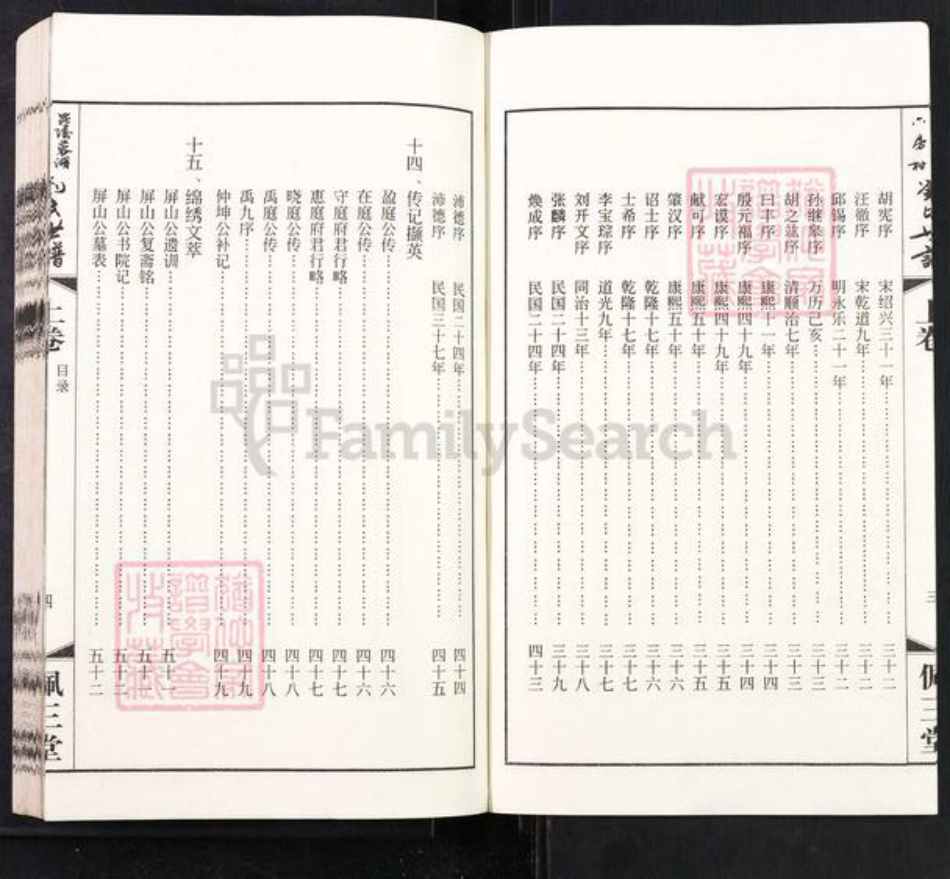 胡宪序 宋绍兴三十一年 三十二
汪徹序 宋乾道九年 三十二
邱锡序 明永乐二十一年 三十二
孙继皋序 万历己亥 三十三
胡之竑序 清顺治七年 三十三
曰丰序 康熙十一年 三十四
殷元福序 康熙四十九年 三十四
宏谟序 康熙四十九年 三十五
献可序 康熙五十年 三十五
肇汉序 康熙五十年 三十六
诏士序 乾隆十七年 三十六
士希序 乾隆十七年 三十七
李宝琮序 道光九年 三十七
刘开文序 同治十三年 三十八
张麟序 民国二十四年 三十九
焕成序 民国二十四年 四十三
上卷
三
佩三堂
沛德序 民国二十四年 四十四
沛德序 民国三十七年 四十五
十四、传记撷英
盈庭公传 四十六
在庭公传 四十六
守庭府君行略 四十七
惠庭府君行略 四十七
晓庭公传 四十八
禹庭公传 四十八
禹九序 四十九
仲坤公补记 四十九
十五、绵绣文萃
屏山公遗训 五十
屏山公复斋铭 五十
屏山公书院记
屏山公墓表 五十二
氏世谱
上卷
目录
四
佩三堂
FamilySearch